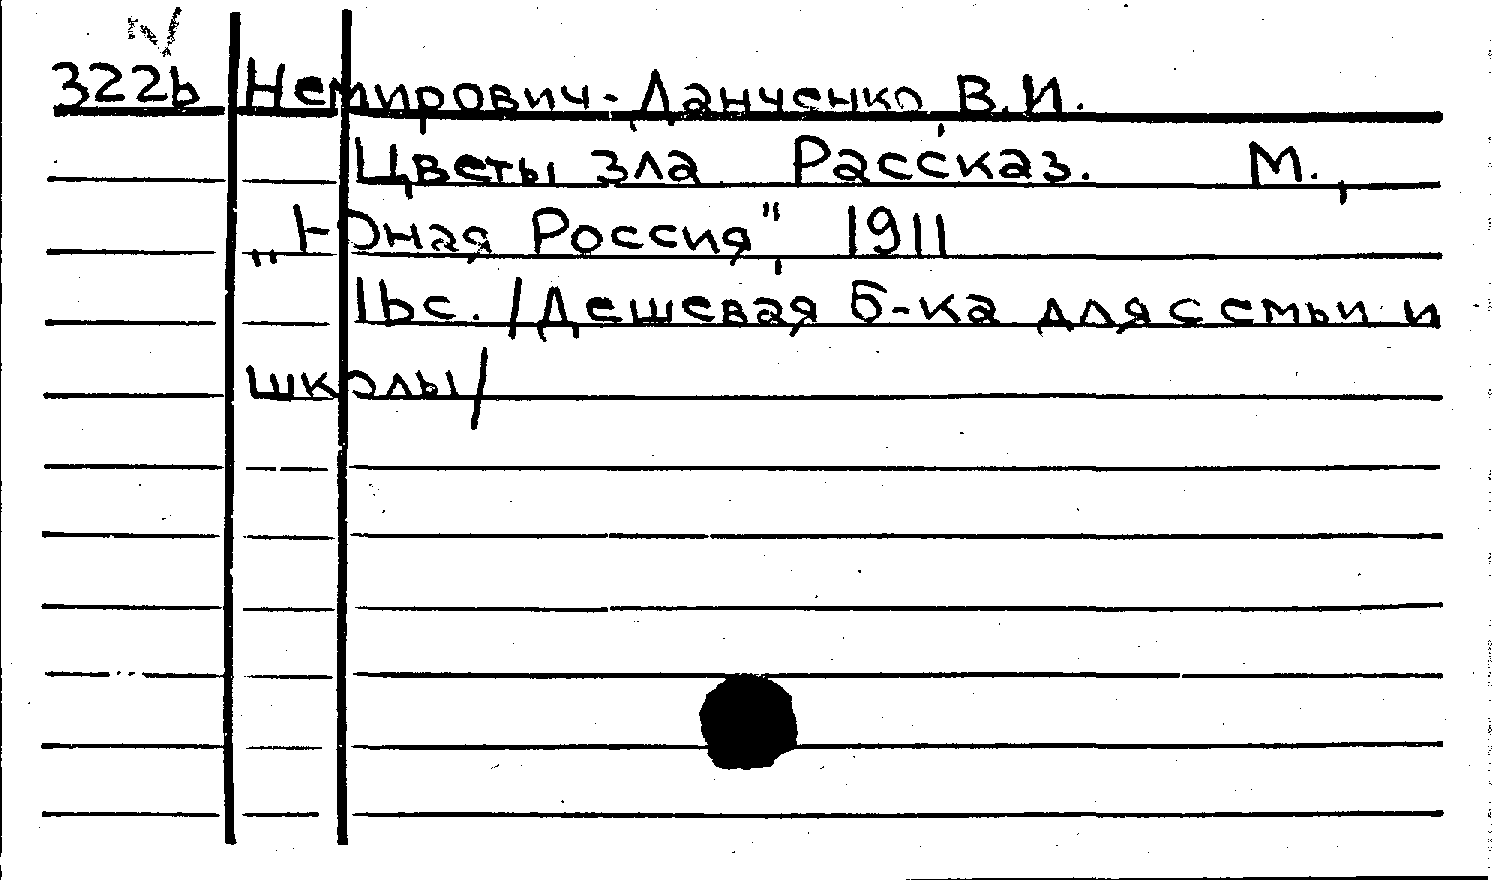 3226 Немирович-Данченко, В.И.
Цветы зла Рассказ. М.,
„Юная Россия", 1911
16с. /Дешевая б-ка для семьи и
школы/